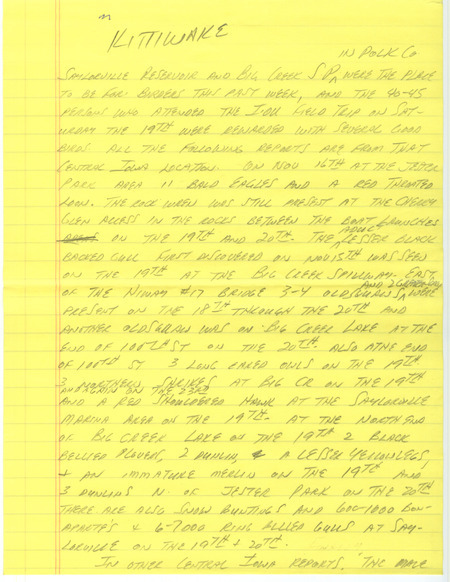 KITTIWAKE
IN POLK CO
SAYLORVILLE RESERVOIR AND BIG CREEK S.P. WERE THE PLACE
TO BE FOR BIRDERS THIS PAST WEEK, AND THE 40-45
PERSONS WHO ATTENDED THE I.O.U. FIELD TRIP ON SAT-
URDAY THE 19TH WERE REWARDED WITH SEVERAL GOOD
BIRDS. ALL THE FOLLOWING REPORTS ARE FROM THAT
CENTRAL IOWA LOCATION. ON NOV 16TH AT THE JESTER
PARK AREA 11 BALD EAGLES AND A RED THROATED
LOON. THE ROCK WREN WAS STILL PRESENT AT THE CHERRY
GLEN ACCESS IN THE ROCKS BETWEEN THE BOAT LAUNCHES
ON THE 19TH AND 20TH. THE ADULT LESSER BLACK
BACKED GULL FIRST DISCOVERED ON NOV 15TH WAS SEEN
ON THE 19TH AT THE BIG CREEK SPILLWAY. EAST
OF THE HIWAY #17 BRIDGE 3-4 OLDSQUAWS AND 2 WERE
PRESENT ON THE 18TH THROUGH THE 20TH AND
ANOTHER OLDSQUAW WAS ON BIG CREEK LAKE AT THE
END OF 100TH ST ON THE 20TH. ALSO AT THE END
OF 100TH ST 3 LONG EARED OWLS ON THE 19TH
3 NORTHERN SHRIKES AT BIG CR ON THE 19TH
AND AGAIN ON THE 22ND
AND A RED SHOULDERED HAWK AT THE SAYLORVILLE
MARINA AREA ON THE 19TH. AT THE NORTH END
OF BIG CREEK LAKE ON THE 19TH 2 BLACK
BELLIED PLOVERS, 2 DUNLIN, & A LESSER YELLOWLEGS,
+ AN IMMATURE MERLIN ON THE 19TH AND
3 DUNLINS N. OF JESTER PARK ON THE 20TH
THERE ARE ALSO SNOW BUNTINGS AND 600-1000 BON-
APARTE'S & 6-7000 RING BILLED GULLS AT SAY-
LORVILLE ON THE 19TH + 20TH.
IN OTHER CENTRAL IOWA REPORTS. THE MALE